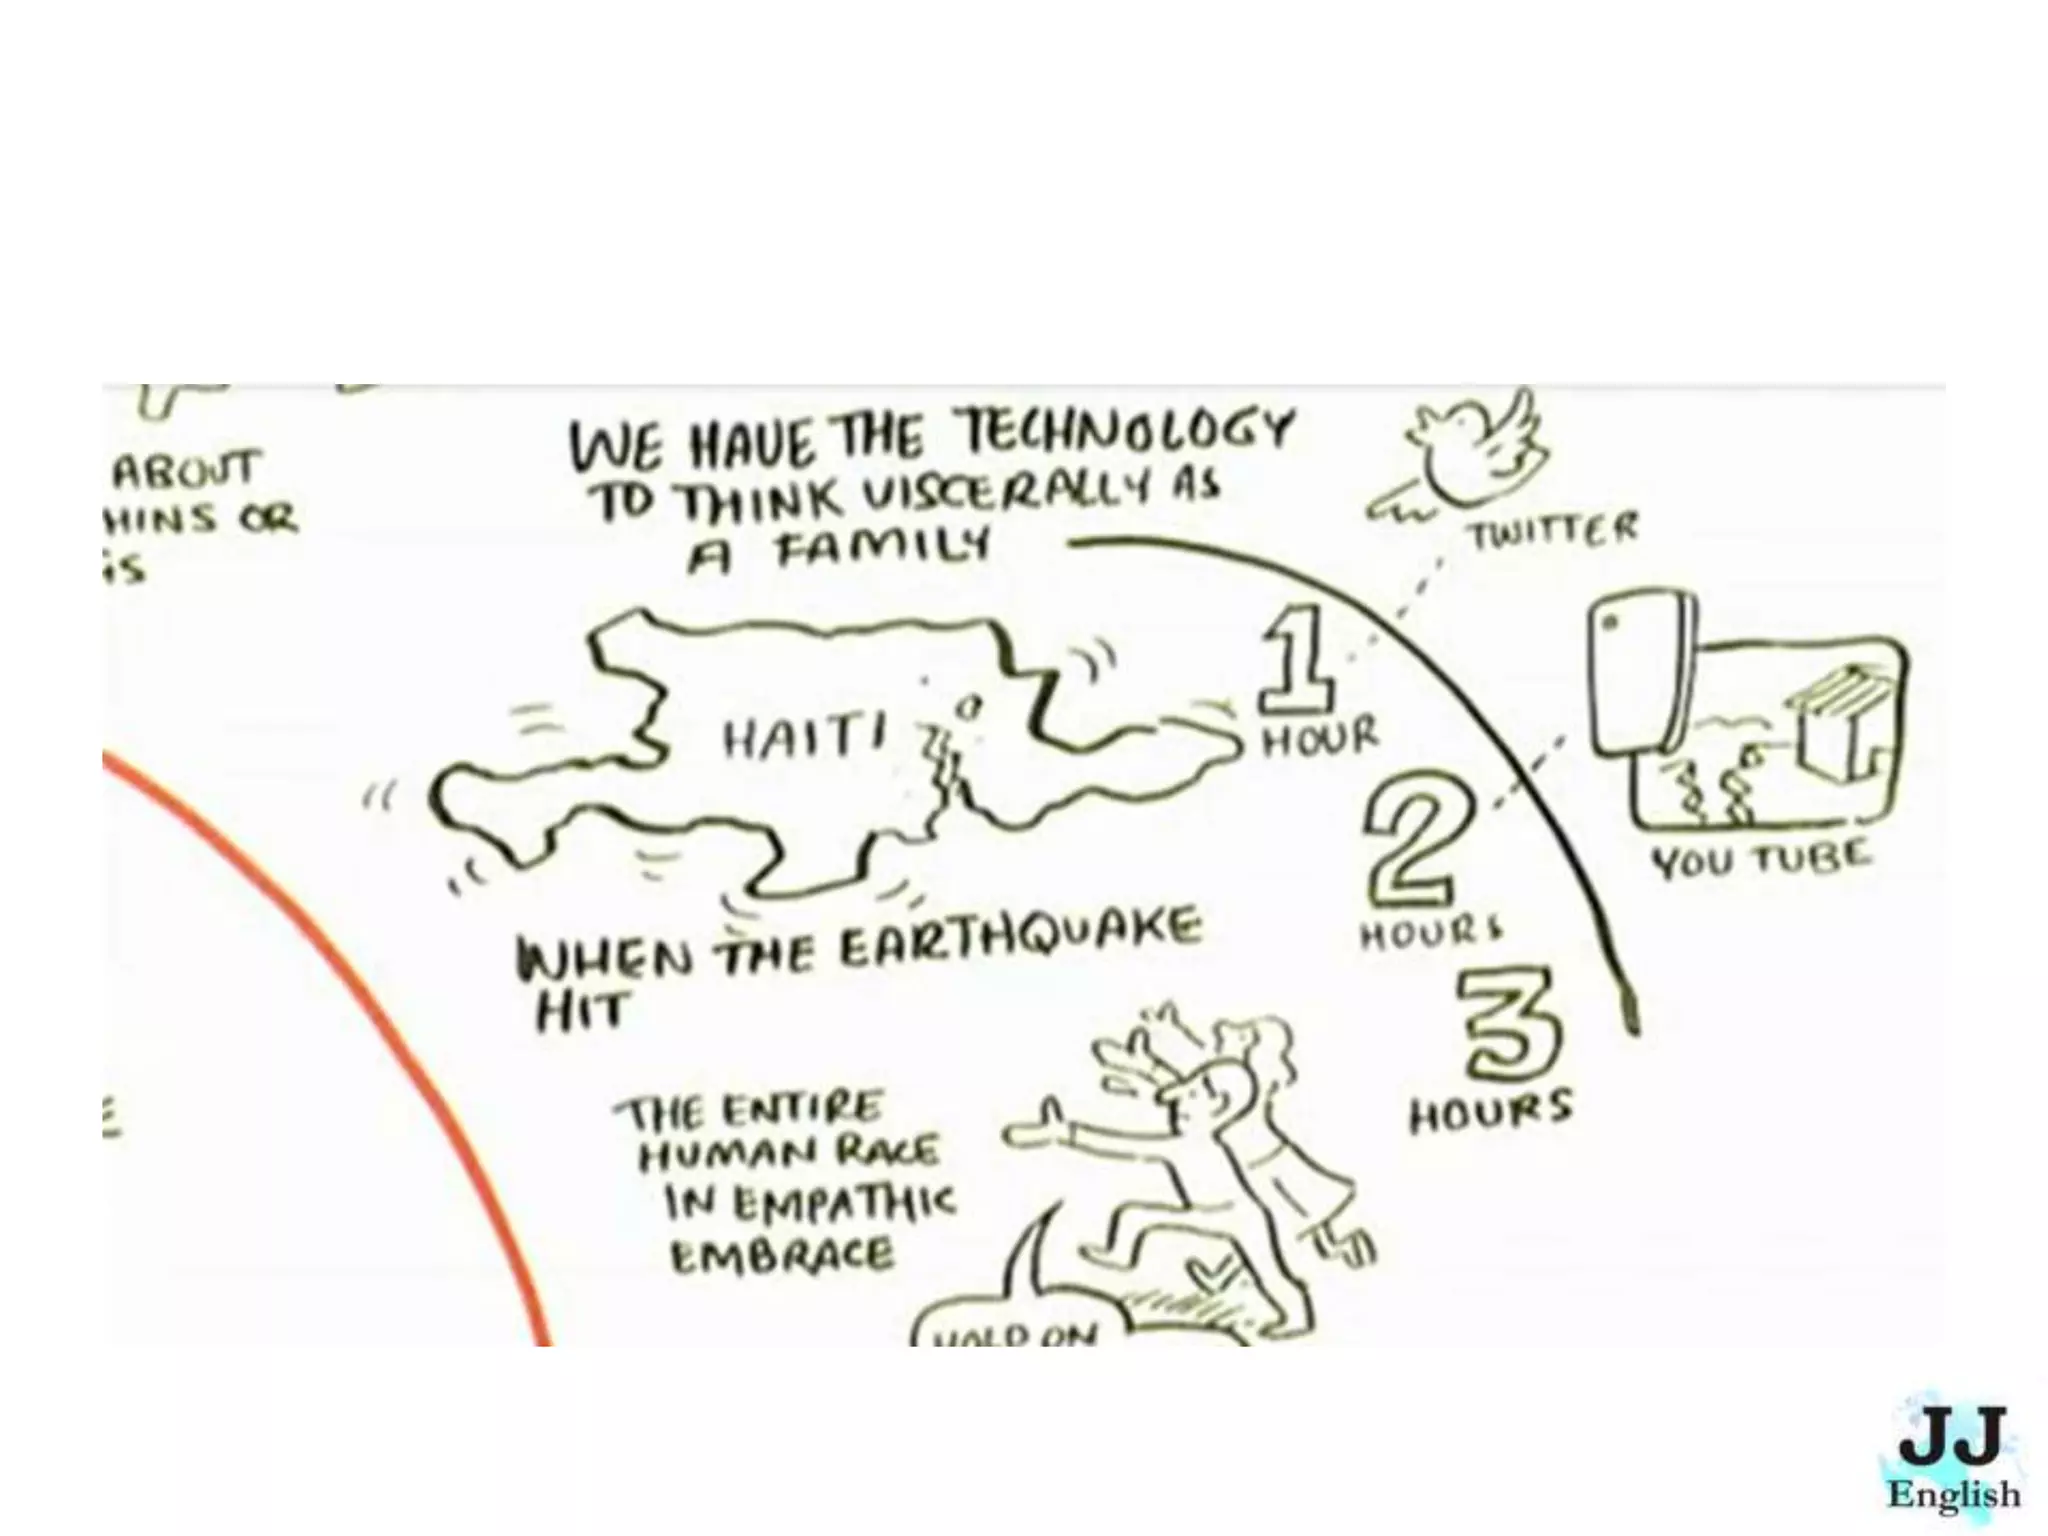 ABOUT
HINS OR
GS
WE HAVE THE TECHNOLOGY
TO THINK VISCERALLY AS
A FAMILY
TWITTER
HAITI
1
HOUR
2
HOURS
YOU TUBE
WHEN THE EARTHQUAKE
HIT
3
HOURS
THE ENTIRE
HUMAN RACE
IN EMPATHIC
EMBRACE
HOLD ON
JJ
English